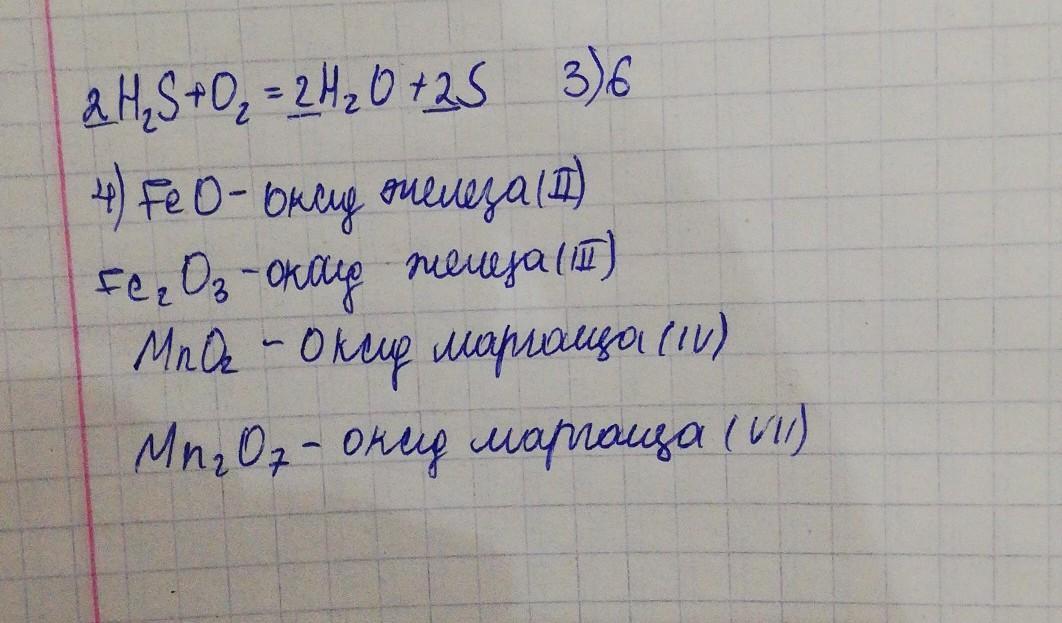 2H₂S+O₂=2H₂O+2S 3)6
4) FeO - оксид железа (II)
Fe₂O₃ - оксид железа (III)
MnO₂ - Оксид марганца (IV)
Mn₂O₇ - оксид марганца (VII)